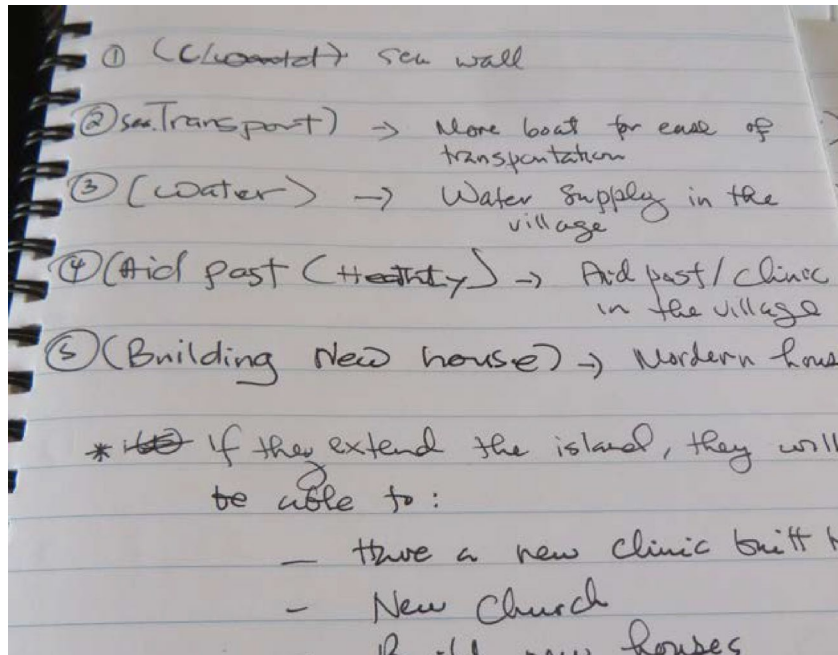 ① sea wall
② sea. Transport) → More boat for ease of
transportation
③ (Water) → Water Supply in the
village
④ (Aid past → Aid past / Clinic
in the village
⑤ (Building New house) → Mordern hous
* If they extend the island, they will
be able to:
– Have a new clinic built
– New Church
new houses